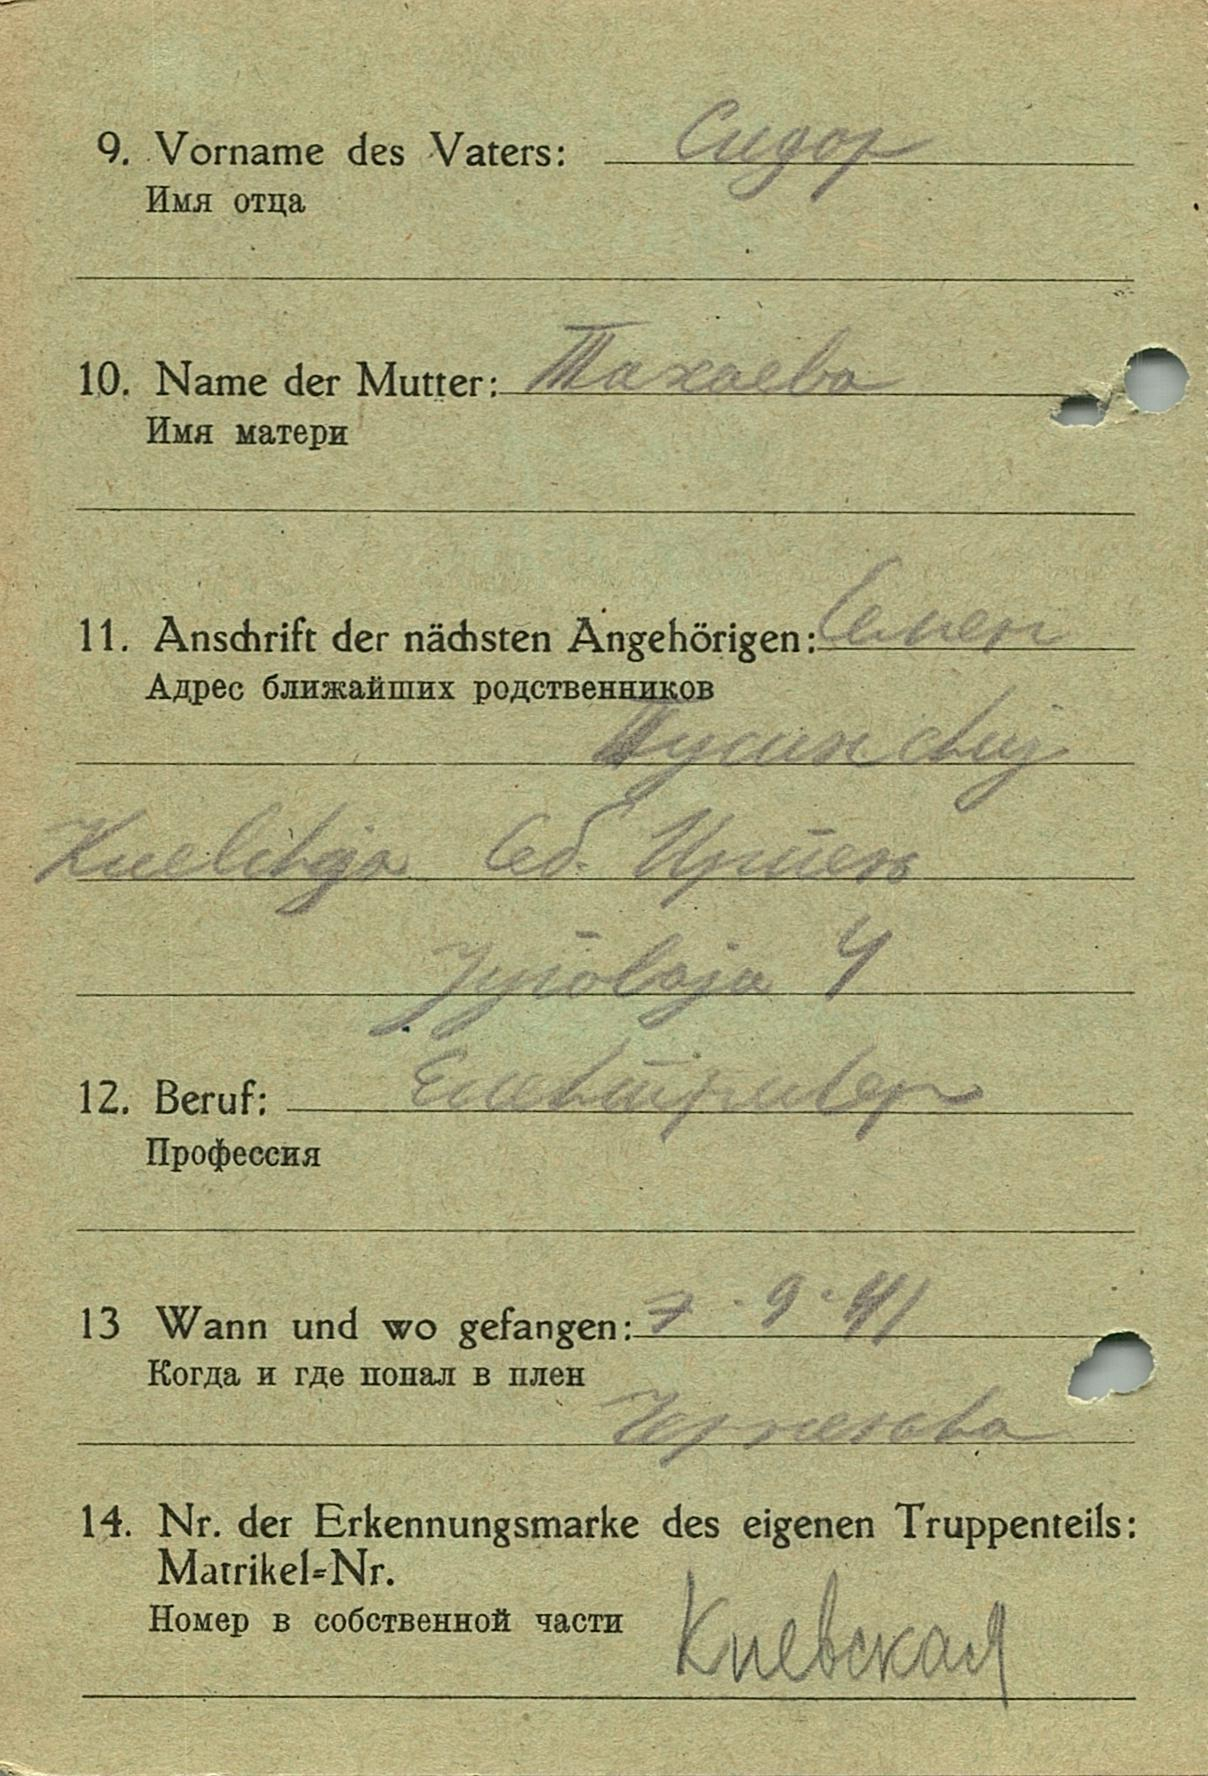 9. Vorname des Vaters: Сидор
Имя отца
10. Name der Mutter: Тахаева
Имя матери
11. Anschrift der nächsten Angehörigen: Семен
Адрес ближайших родственников
Об. Ирпень
4
12. Beruf:
Профессия
13 Wann und wo gefangen: 7.9.41
Когда и где попал в плен
14. Nr. der Erkennungsmarke des eigenen Truppenteils:
Matrikel=Nr.
Номер в собственной части
Киевская